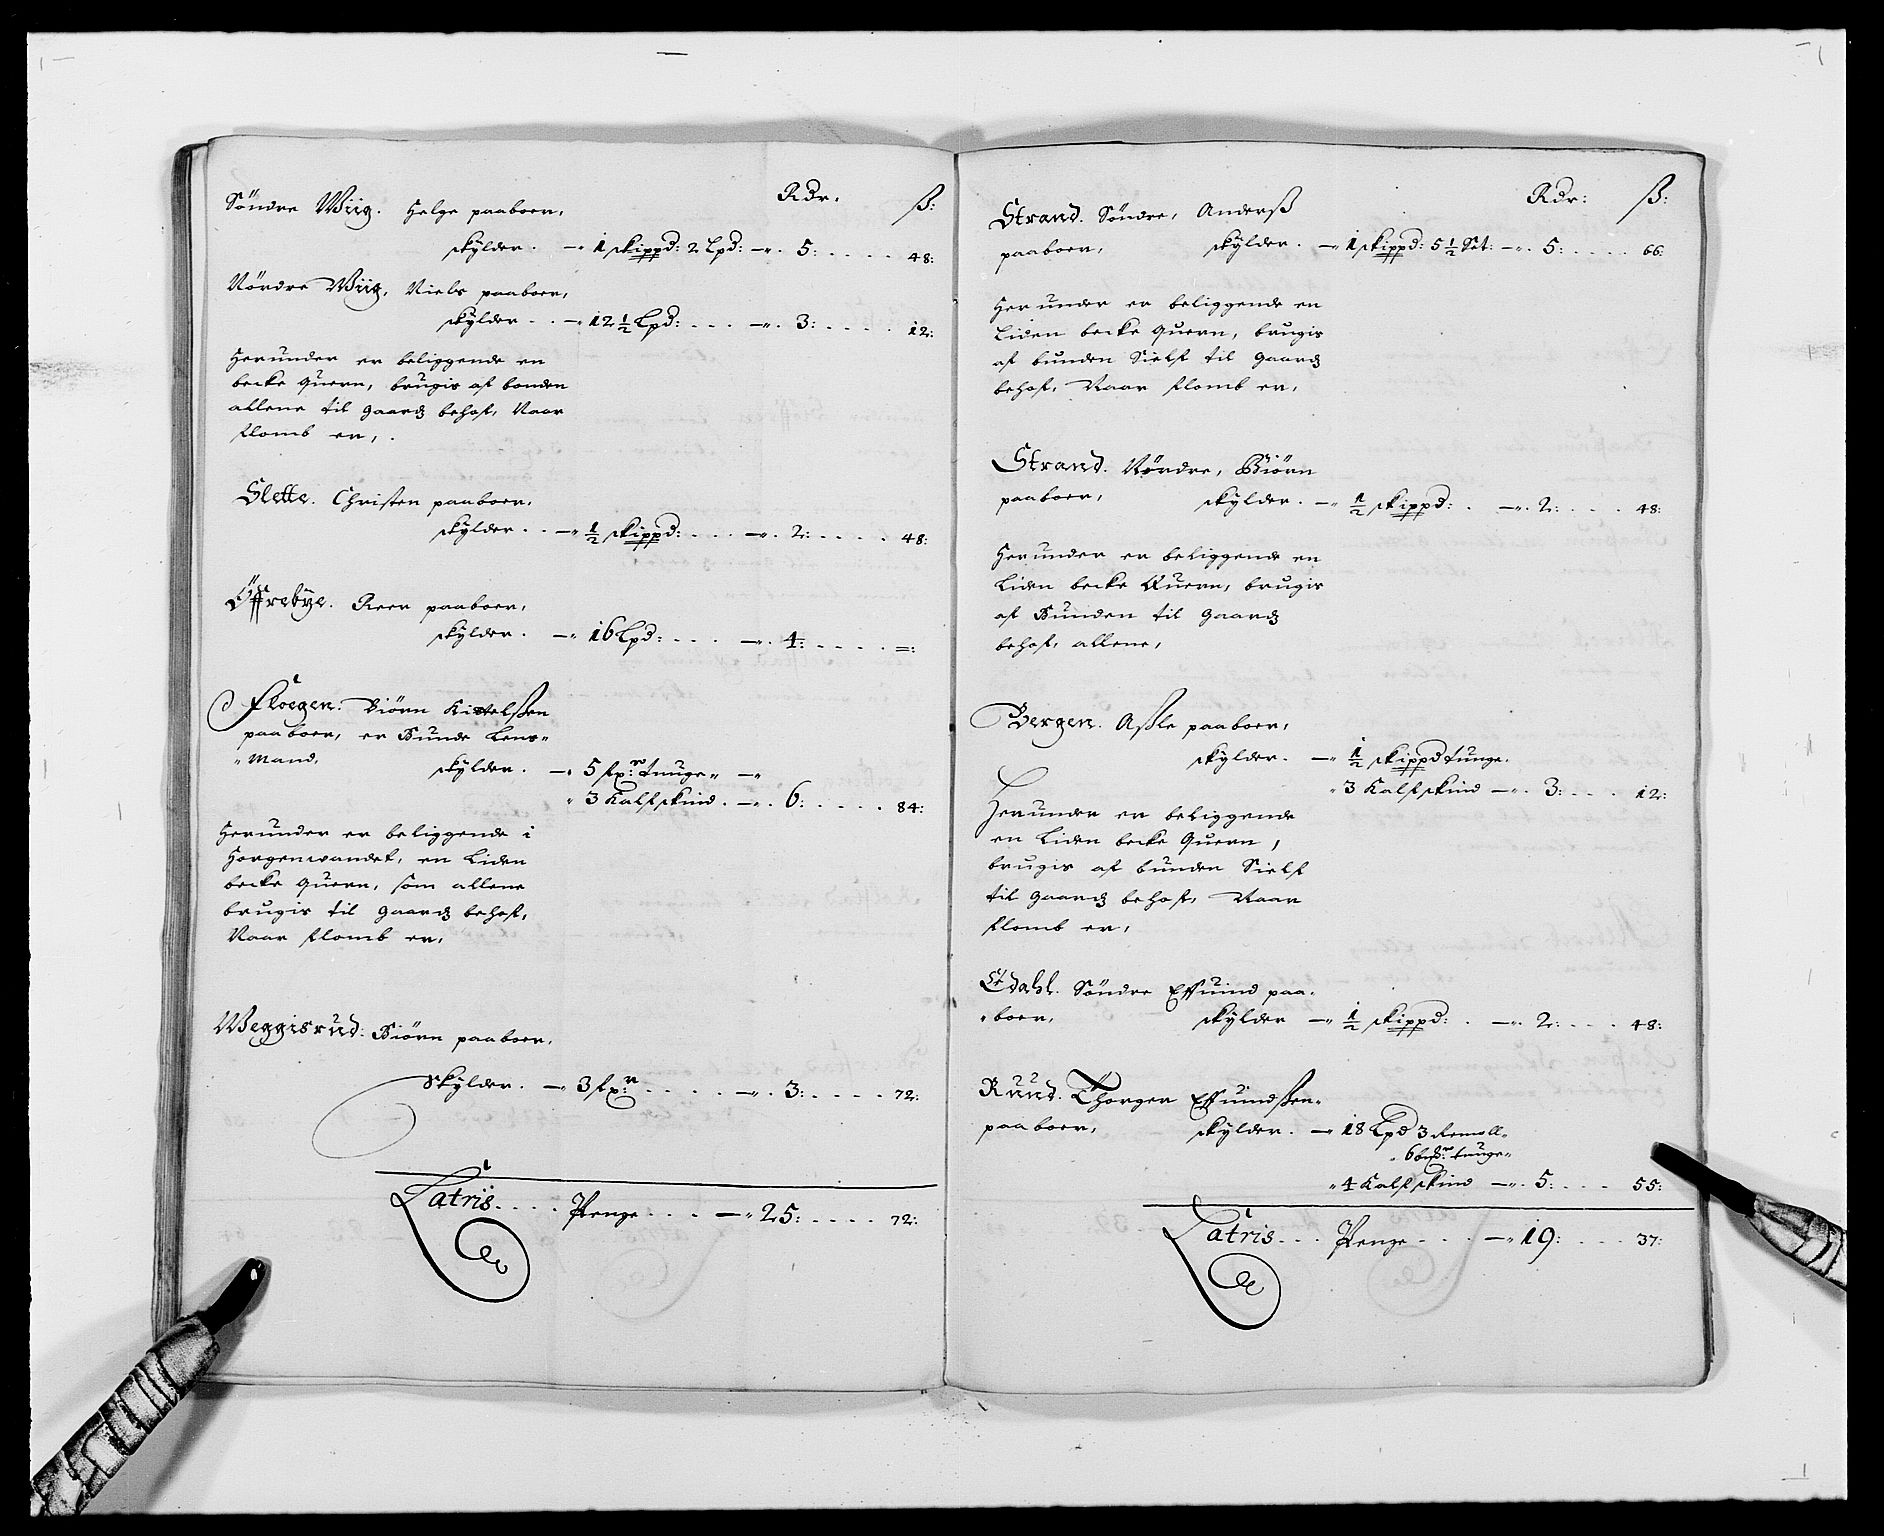 Rdr: ß:
Söndre Wiig. Helge paaboer,
skylder. — 1 skippd: 2 Lpd: — 5: . . . . 48:
Nördre Wiig, Niels paaboer,
skylder . . — 12 ½ Lpd: . . . — 3: . . . . 12:
Herunder er beliggende en
becke quern, brugis af bonden
allene til gaardz behof, Naar
flomb er, .
Slette. Christen paaboer,
skylder . . — ½ skippd: . . . — 2: . . . . 48:
Öffrebÿe. Reer paaboer,
skylder. — 16 Lpd: . . . — 4: . . . . =:
Floegen: Biörn Kittelßen
paaboer, er Bunde Lens=
=Mand,
skylder. — 5 fx:r tunge= —
3 Kalfskind . — 6: . . . . 84:
Herunder er beliggende i
Horgenwandet, en Liden
becke quern, som allene
brugis til gaardz behof,
Naar flomb er,
Weggisrud: Biörn paaboer,
Skylder. — 3 fx:r . . . . — 3: . . . . 72:
Latris . . . . Penge . . . — 25: . . . . 72:
Rdr: ß:
Strand. Söndre, Anderß
paaboer, skylder. — 1 skippd: 5 ½ Set: — 5: . . . . 66:
Herunder er beliggende en
Liden becke quern, brugis
af bunden Sielf til gaardz
behof, Naar flomb er,
Strand. Nørdre, Biörn
paaboer, skylder. — ½ skippd: . — 2: . . . 48:
Herunder er beliggende en
Liden becke Quern, brugis
af Bunden til gaardz
behof, allene,
Bergen. Aßle paaboer,
skylder. — ½ skippd tunge.
3 Kalfskind — 3: . . . 12:
Herunder er beliggende
en Liden becke Quern,
brugis af bunden Sielf
til gaardz behof, Naar
flomb er,
Edahl. Söndre Effuind paa=
=boer, skylder — ½ skippd: . — 2: . . . 48:
Ruud. Thorger Effuindßen=
paaboer, skylder. — 18 Lpd 3 Remoll=
6 tunge=
4 Kalfskind — 5: . . . 55:
Latris . . . Penge . . . — 19: . . . 37: